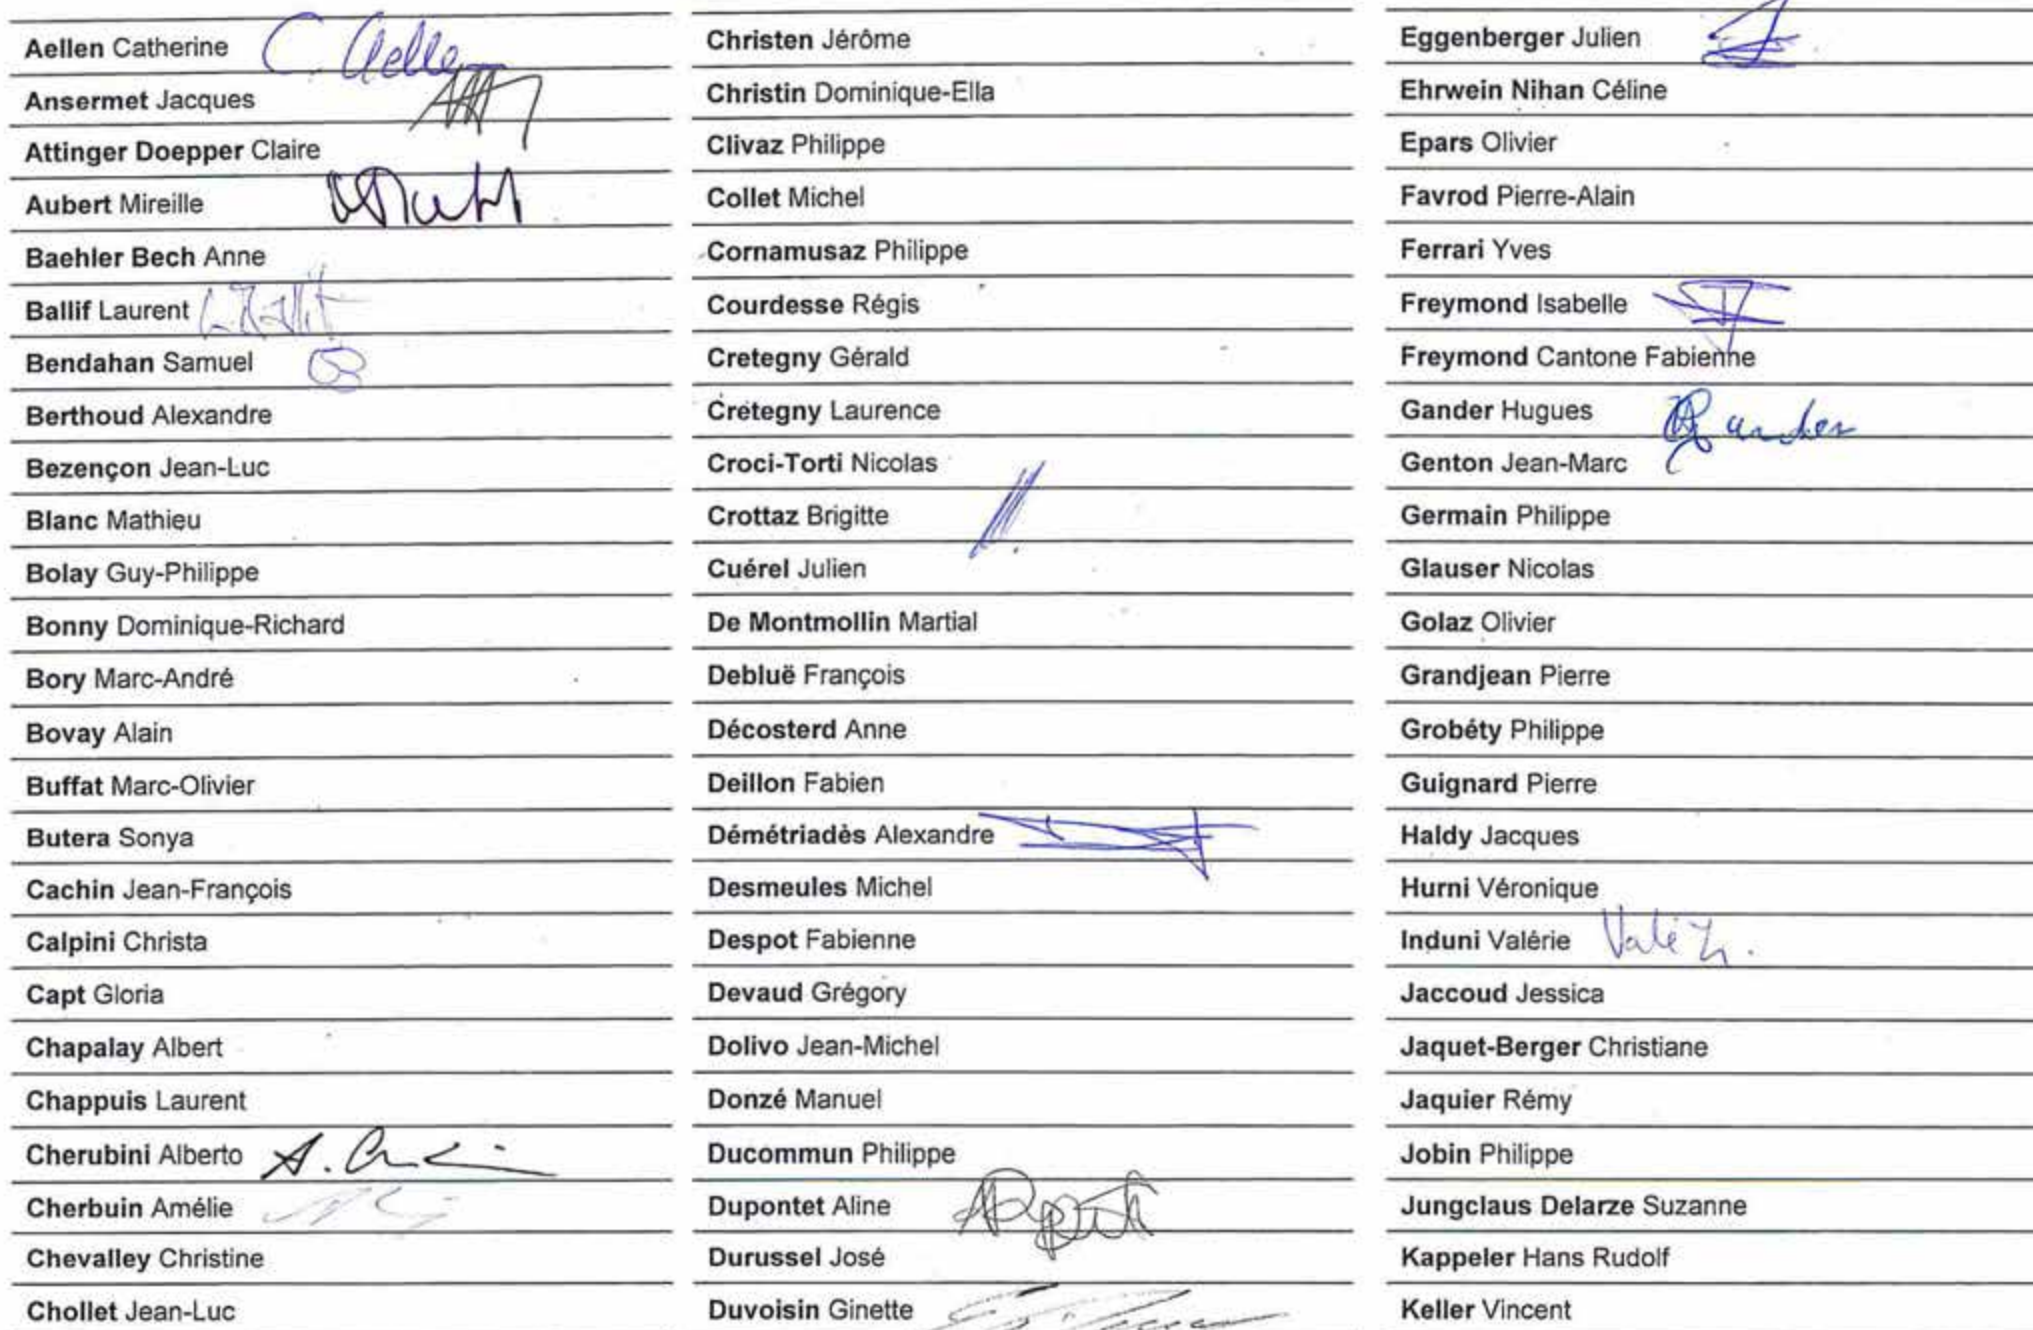 Aellen Catherine C. Aellen
Ansermet Jacques
Attinger Doepper Claire
Aubert Mireille
Baehler Bech Anne
Ballif Laurent
Bendahan Samuel
Berthoud Alexandre
Bezençon Jean-Luc
Blanc Mathieu
Bolay Guy-Philippe
Bonny Dominique-Richard
Bory Marc-André
Bovay Alain
Buffat Marc-Olivier
Butera Sonya
Cachin Jean-François
Calpini Christa
Capt Gloria
Chapalay Albert
Chappuis Laurent
Cherubini Alberto
Cherbuin Amélie
Chevalley Christine
Chollet Jean-Luc
Christen Jérôme
Christin Dominique-Ella
Clivaz Philippe
Collet Michel
Cornamusaz Philippe
Courdesse Régis
Cretegny Gérald
Cretegny Laurence
Croci-Torti Nicolas
Crottaz Brigitte
Cuérel Julien
De Montmollin Martial
Debluë François
Décosterd Anne
Deillon Fabien
Démétriadès Alexandre
Desmeules Michel
Despot Fabienne
Devaud Grégory
Dolivo Jean-Michel
Donzé Manuel
Ducommun Philippe
Dupontet Aline
Durussel José
Duvoisin Ginette
Eggenberger Julien
Ehrwein Nihan Céline
Epars Olivier
Favrod Pierre-Alain
Ferrari Yves
Freymond Isabelle
Freymond Cantone Fabienne
Gander Hugues Gander
Genton Jean-Marc
Germain Philippe
Glauser Nicolas
Golaz Olivier
Grandjean Pierre
Grobéty Philippe
Guignard Pierre
Haldy Jacques
Hurni Véronique
Induni Valérie
Jaccoud Jessica
Jaquet-Berger Christiane
Jaquier Rémy
Jobin Philippe
Jungclaus Delarze Suzanne
Kappeler Hans Rudolf
Keller Vincent